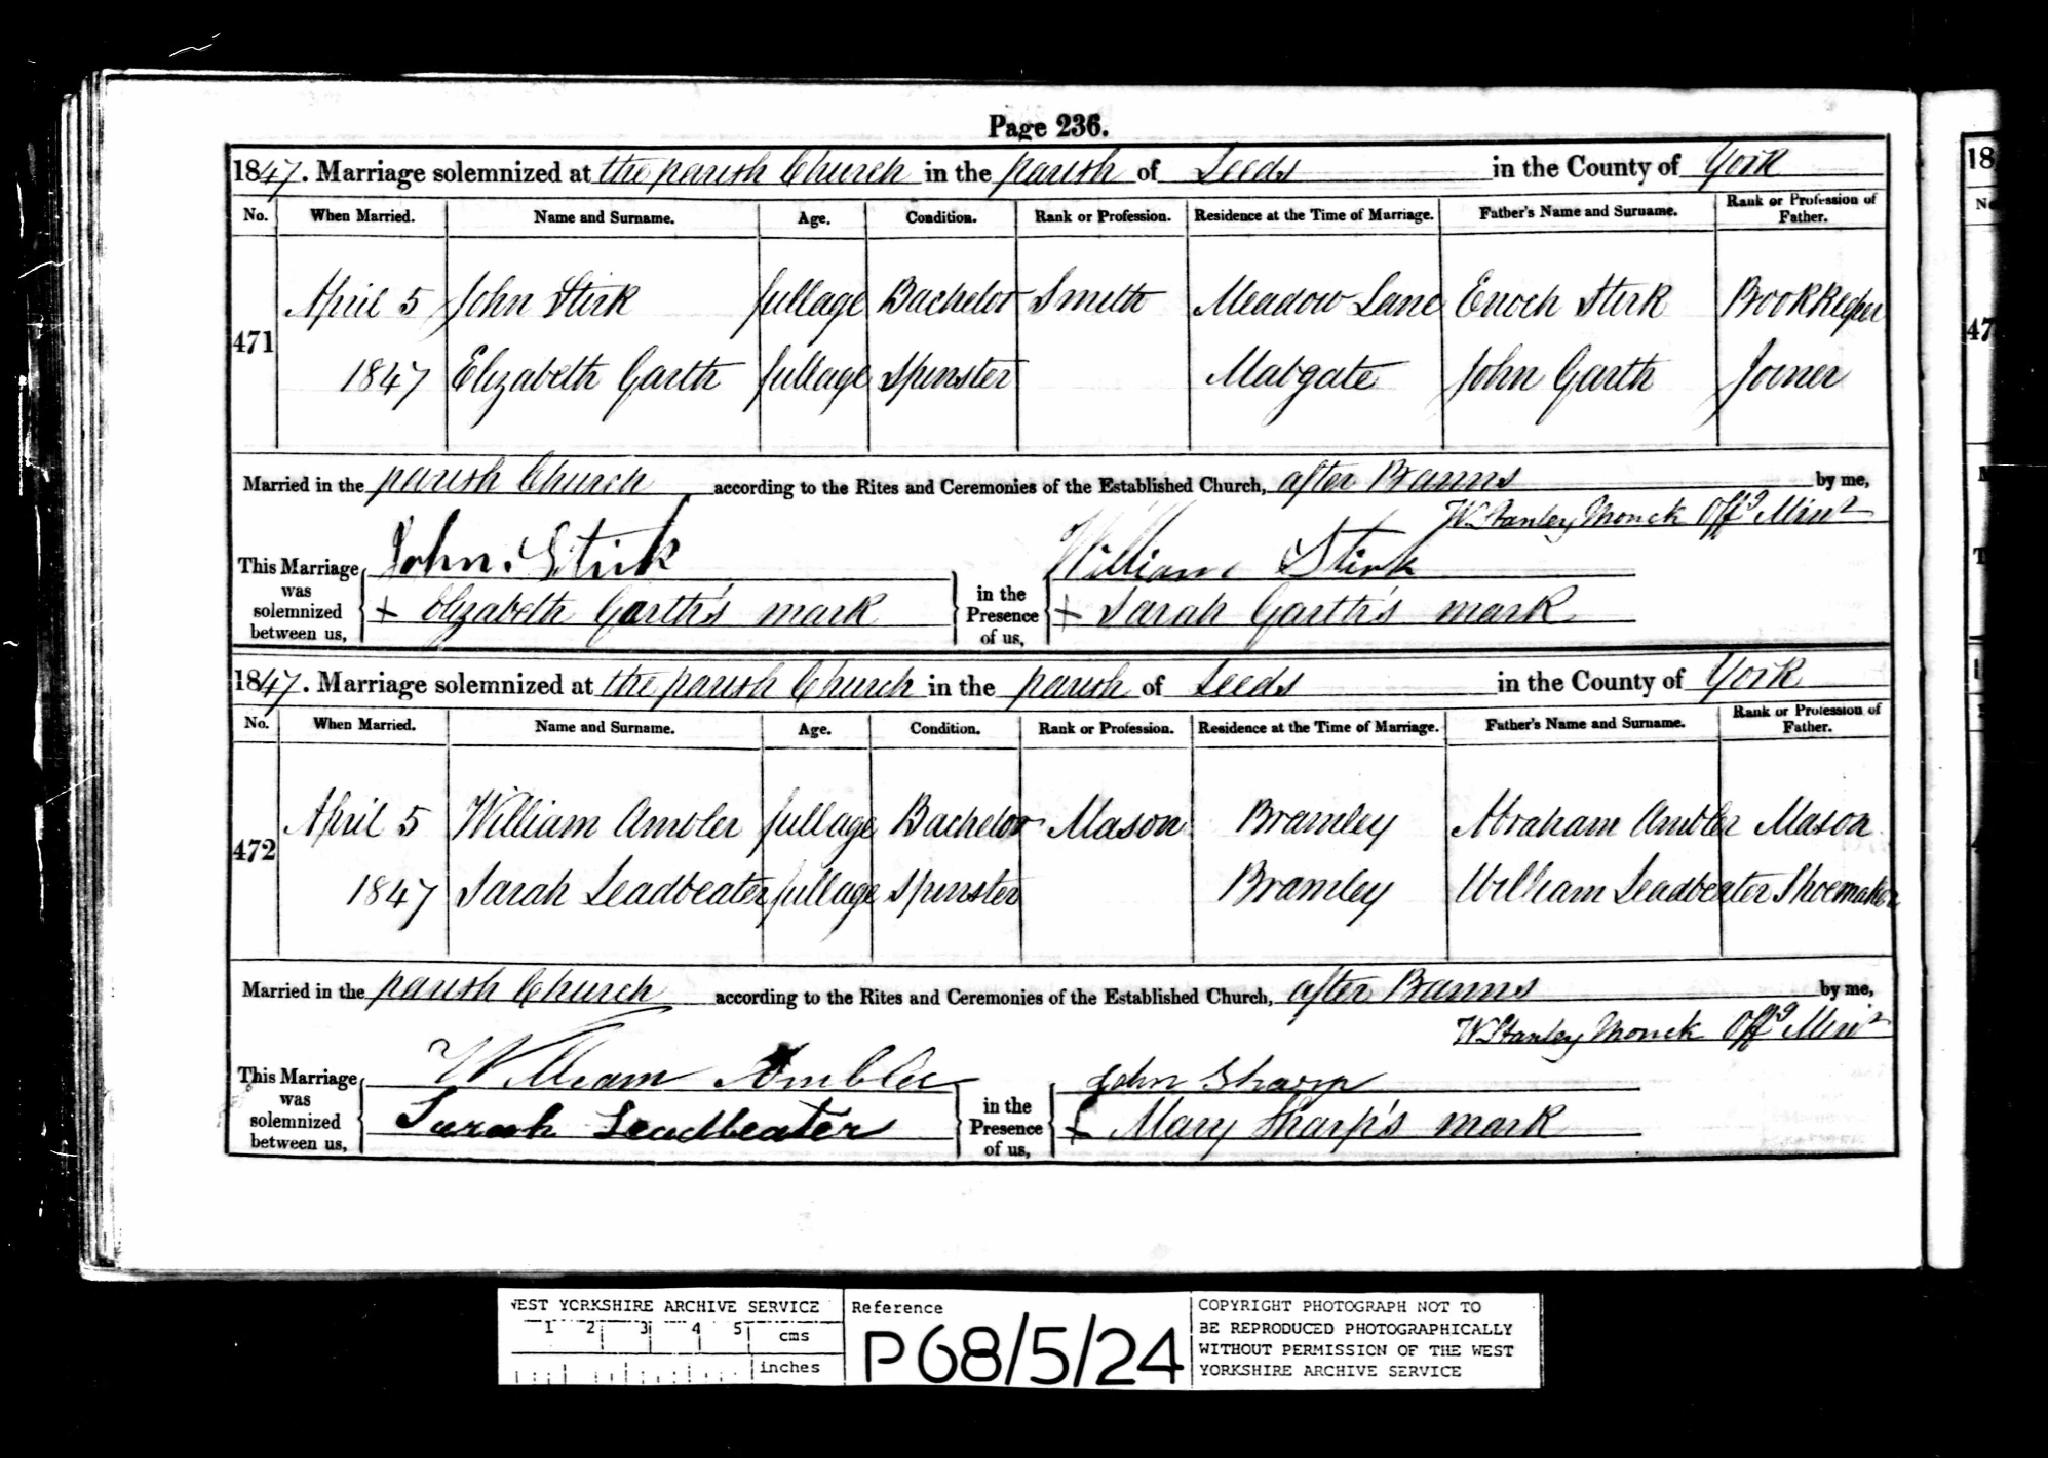 Page 236.
1847. Marriage solemnized at the parish Church in the parish of Leeds in the County of York
No. When Married. Name and Surname. Age. Condition. Rank or Profession. Residence at the Time of Marriage. Father's Name and Surname. Rank or Profession of Father.
April 5 John Stirk full age Bachelor Smith Meadow Lane Enoch Stirk Bookkeeper
471
1847 Elizabeth Garth full age Spinster Mabgate John Garth Joiner
Married in the parish Church according to the Rites and Ceremonies of the Established Church, after Banns by me,
W Stanley Monck Offg Minr
This Marriage was solemnized between us, John Stirk in the Presence of us, William Stirk
X Elizabeth Garth's mark X Sarah Garth's mark
1847. Marriage solemnized at the parish Church in the parish of Leeds in the County of York
No. When Married. Name and Surname. Age. Condition. Rank or Profession. Residence at the Time of Marriage. Father's Name and Surname. Rank or Profession of Father.
April 5 William Ambler full age Bachelor Mason Bramley Abraham Ambler Mason
472
1847 Sarah Leadbeater full age Spinster Bramley William Leadbeater Shoemaker
Married in the parish Church according to the Rites and Ceremonies of the Established Church, after Banns by me,
W Stanley Monck Offg Minr
This Marriage was solemnized between us, William Ambler in the Presence of us, John Sharp
Sarah Leadbeater X Mary Sharp's mark
WEST YORKSHIRE ARCHIVE SERVICE
1 2 3 4 5 cms
inches
Reference
P68/5/24
COPYRIGHT PHOTOGRAPH NOT TO
BE REPRODUCED PHOTOGRAPHICALLY
WITHOUT PERMISSION OF THE WEST
YORKSHIRE ARCHIVE SERVICE